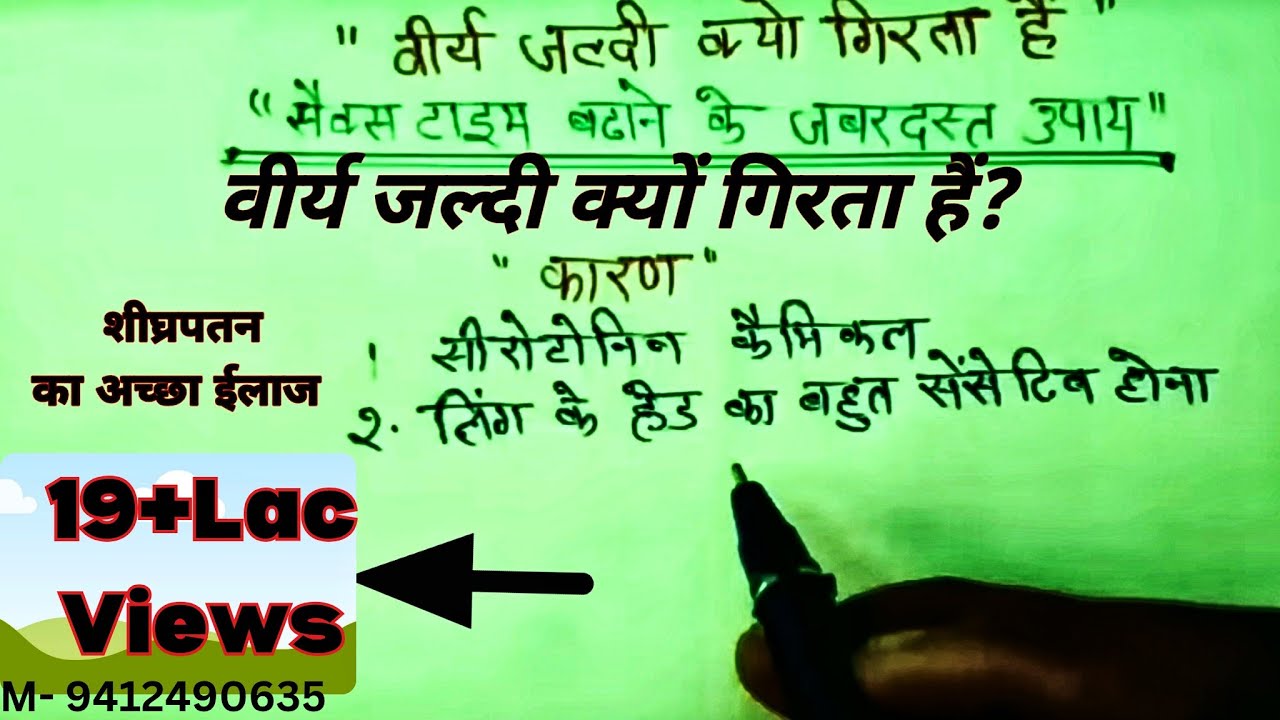 " वीर्य जल्दी क्यो गिरता हैं "
"सैक्स टाइम बढाने के जबरदस्त उपाय"
वीर्य जल्दी क्यों गिरता हैं?
" कारण "
१ सीरोटोनिन कैमिकल
२. लिंग के हेड का बहुत सेंसेटिव होना
शीघ्रपतन
का अच्छा ईलाज
19+Lac
Views
M- 9412490635